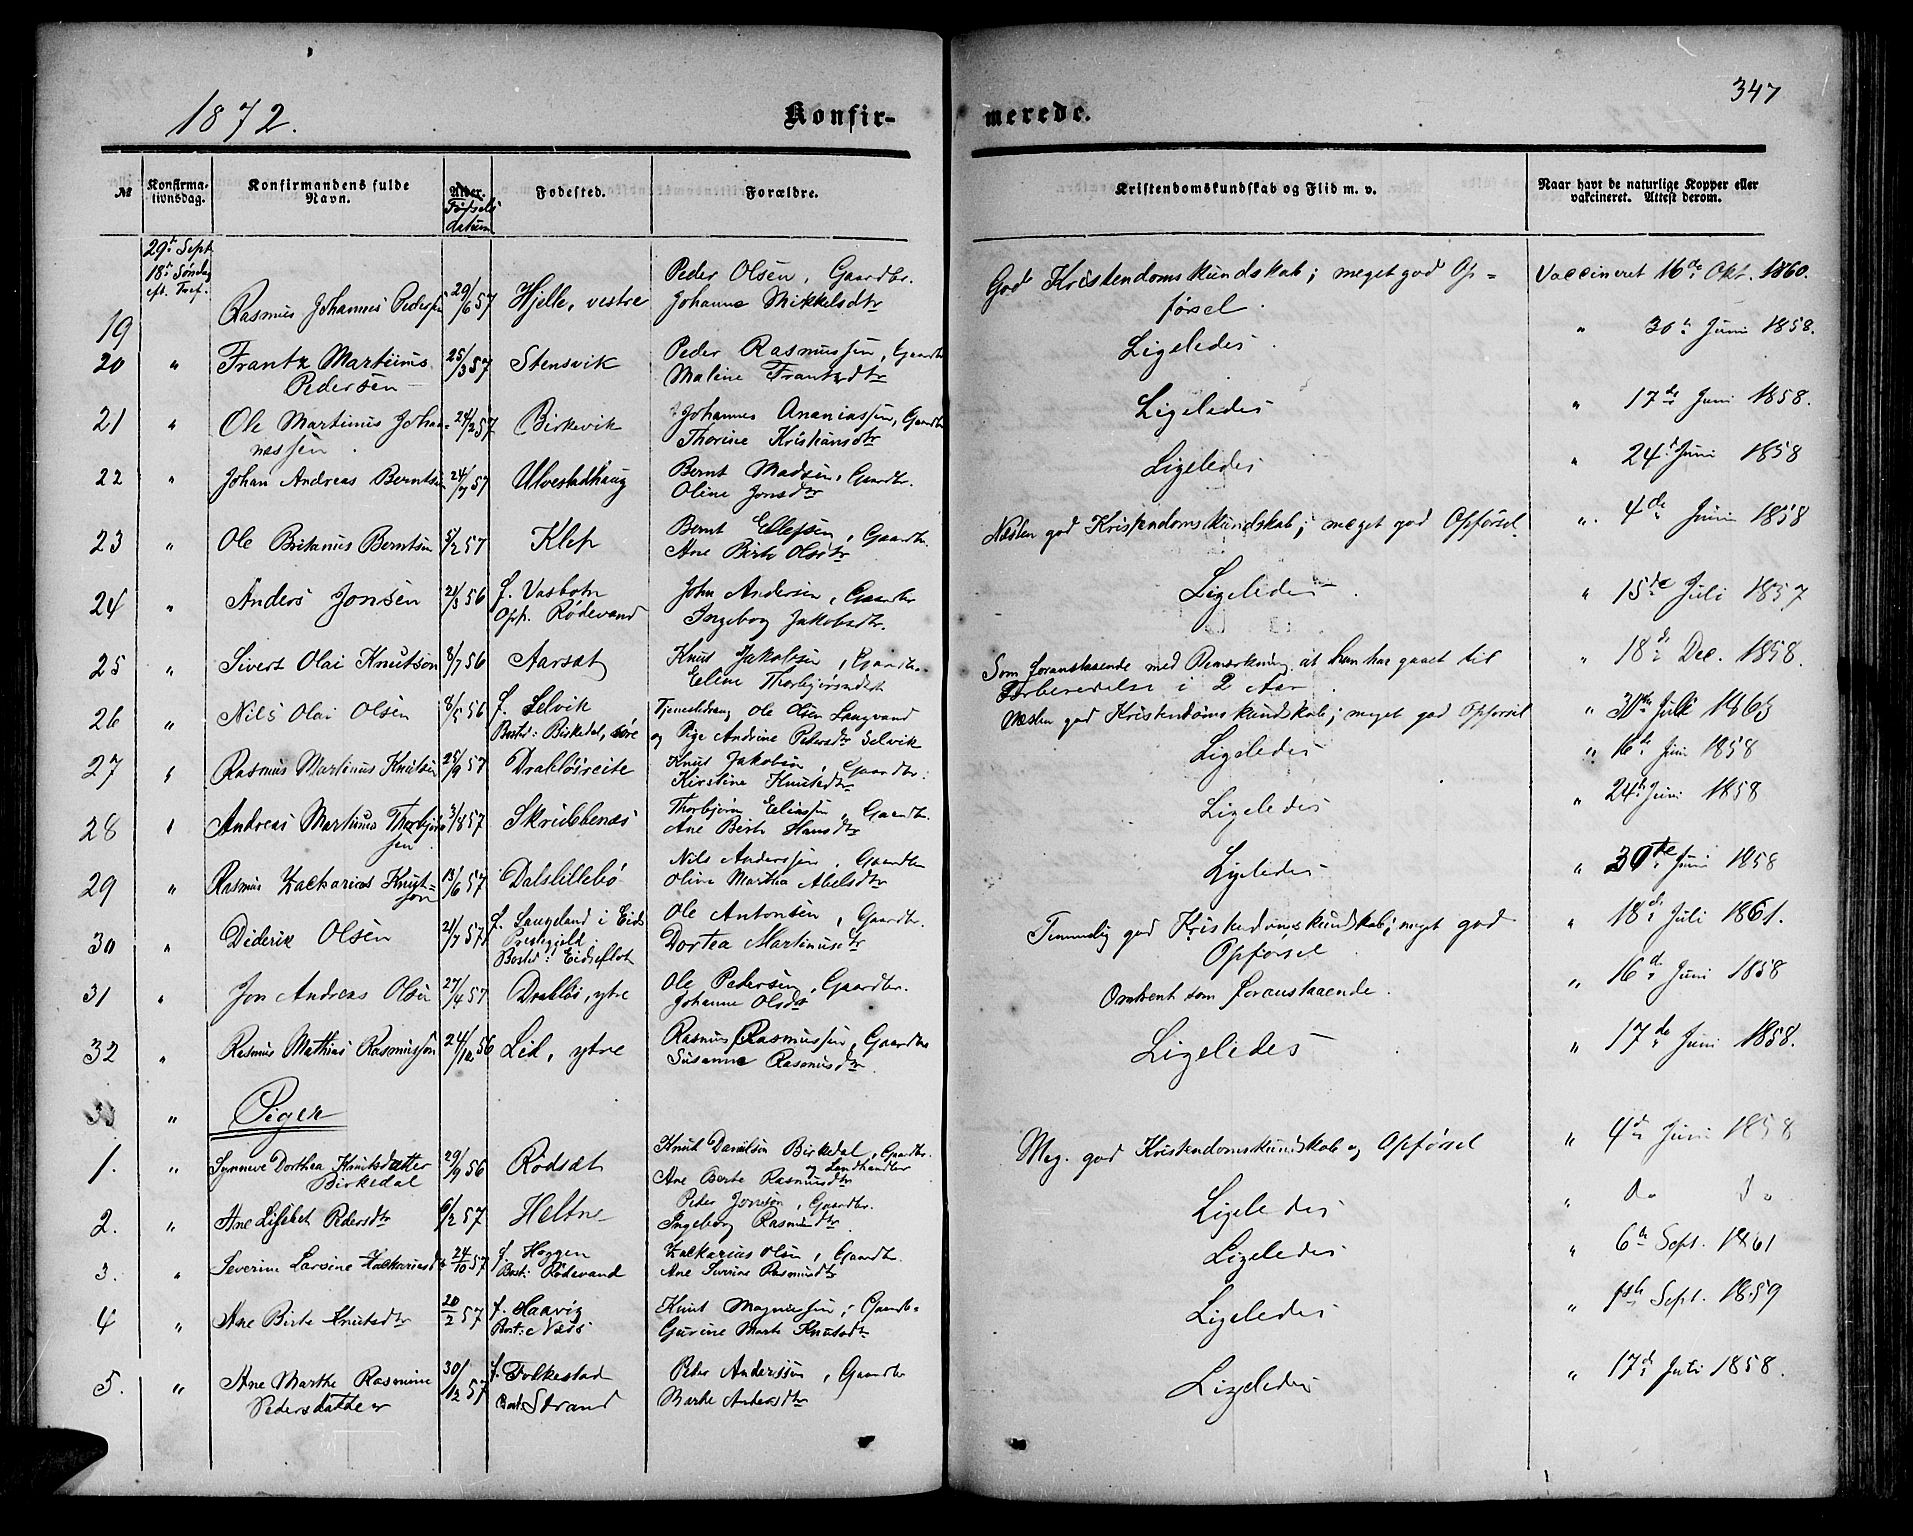 1872.
Konfir-
merede.
347
№
Konfirma-
tionsdag.
Konfirmandens fulde
Navn.
Alder.
Fødsels
datum
Fødested.
Forældre.
Kristendomskundskab og Flid m. v.
Naar havt de naturlige Kopper eller
vakcineret. Attest derom.
29de Sept.
18de Søndag
eft. Tref.
19 Rasmus Johannes Pedersen 29/6 57 Hjelle, vestre
Peder Olsen, Gaardbr.
Johanne Mikkelsdtr
God Kristendomskundskab; meget god Op=
førsel.
Vaccineret 16de Okt. 1860.
20 " Frantz Martinus
Pedersen
25/3 57 Stensvik
Peder Rasmussen, Gaardbr
Maline Frantzdtr
Ligeledes.
" 30te Juni 1858.
21 " Ole Martinus Johan
nessen.
24/2 57 Birkevik
Johannes Ananiassen, Gaardbr
Thorine Kristiansdtr
Ligeledes
" 17de Juni 1858.
22 " Johan Andreas Berntsen 24/7 57 Ulvestadhaug
Bernt Madsen, Gaardbr.
Oline Jonsdtr
Ligeledes
" 24de Juni 1858
23 " Ole Britanus Berntsen 5/2 57 Klep
Bernt Ellefsen, Gaardbr.
Ane Birte Olsdtr
Næsten god Kristendomskundskab; meget god Opførsel.
" 4de Juni 1858
24 " Anders Jonsen 21/3 56 f. Vasbotn
Oph. Rødevand
John Andersen, Gaardbr
Ingeborg Jakobsdtr.
Ligeledes.
" 15de Juli 1857
25 " Sivert Olai Knutson 8/7 56 Aarsæt
Knut Jakobsen, Gaardbr.
Eline Thorbjørnsdtr
Som foranstaaende med Bemærkning at han har gaaet til
Forberedelse i 2 Aar.
" 18de Dec. 1858.
26 " Nils Olai Olsen 8/5 56 f. Selvik
Bosted: Birkedal, søre
Tjenestedreng Ole Olsen Langvand
og Pige Andrine Pedersdtr Selvik
Næsten god Kristendomskundskab; meget god Opførsel
" 31te Juli 1865
27 " Rasmus Martinus Knutsen 25/9 57 Drabløsreite
Knut Jakobsen, Gaardbr:
Kirstine Knutsdtr
Ligeledes
" 16de Juni 1858
28 " Andreas Martinus Thorbjørn
sen.
3/8 57 Skrubbenæs
Thorbjørn Eliassen, Gaardbr.
Ane Birte Hansdtr
Ligeledes
" 24de Juni 1858
29 " Rasmus Zackarias Knut-
son
13/6 57 Dalslillebø
Nils Anderssen, Gaardbr
Oline Martha Abelsdtr
Ligeledes
" 30te Juni 1858
30 " Diderik Olsen 21/7 57 f. Langeland i Eids
Prestegjeld
Bosted: Eidseflot
Ole Antonsen, Gaardbr.
Dortea Martinusdtr
Temmelig god Kristendomskundskab; meget god
Opførsel.
" 18de Juli 1861.
31 " Jon Andreas Olsen 27/4 57 Drabløs, ytre
Ole Pedersen, Gaardbr.
Johanne Olsdtr
Omtrent som foranstaaende.
" 16de Juni 1858
32 " Rasmus Mathias Rasmusson 24/10 56 Lid, ytre
Rasmus Rasmussen, Gaardbr
Susanne Rasmusdtr.
Ligeledes
" 17de Juni 1858.
33 " Piger
1. " Synneve Dorthea Knutsdatter
Birkedal
29/9 56 Rødsæt
Knut Danielsen Birkedal, Gaardbr.
og Landhandler
Ane Berte Rasmusdtr
Meg. god Kristendomskundskab og Opførsel
" 4de Juni 1858
2. " Ane Lisebet Pedersdtr 6/2 57 Heltne
Peder Jonsen, Gaardbr.
Ingeborg Rasmusdtr.
Ligeledes
" do do
3. " Severine Larsine Zackariasdtr 24/10 57 f. Haggen
Bost: Rødevand
Zackarias Olsen, Gaardbr.
Ane Severine Rasmusdtr
Ligeledes
" 6te Sept. 1861
4 " Ane Birte Knutsdtr 20/2 57 f. Haavig
Bost: Næs
Knut Magnussen, Gaardbr
Gurine Marte Knutsdtr
Ligeledes
" 1ste Sept. 1859
5. " Ane Marthe Rasmine
Pedersdatter
30/12 57 f. Folkestad
Bost Strand
Peder Anderssen, Gaardbr
Marte Andersdtr
Ligeledes
" 17de Juli 1858.